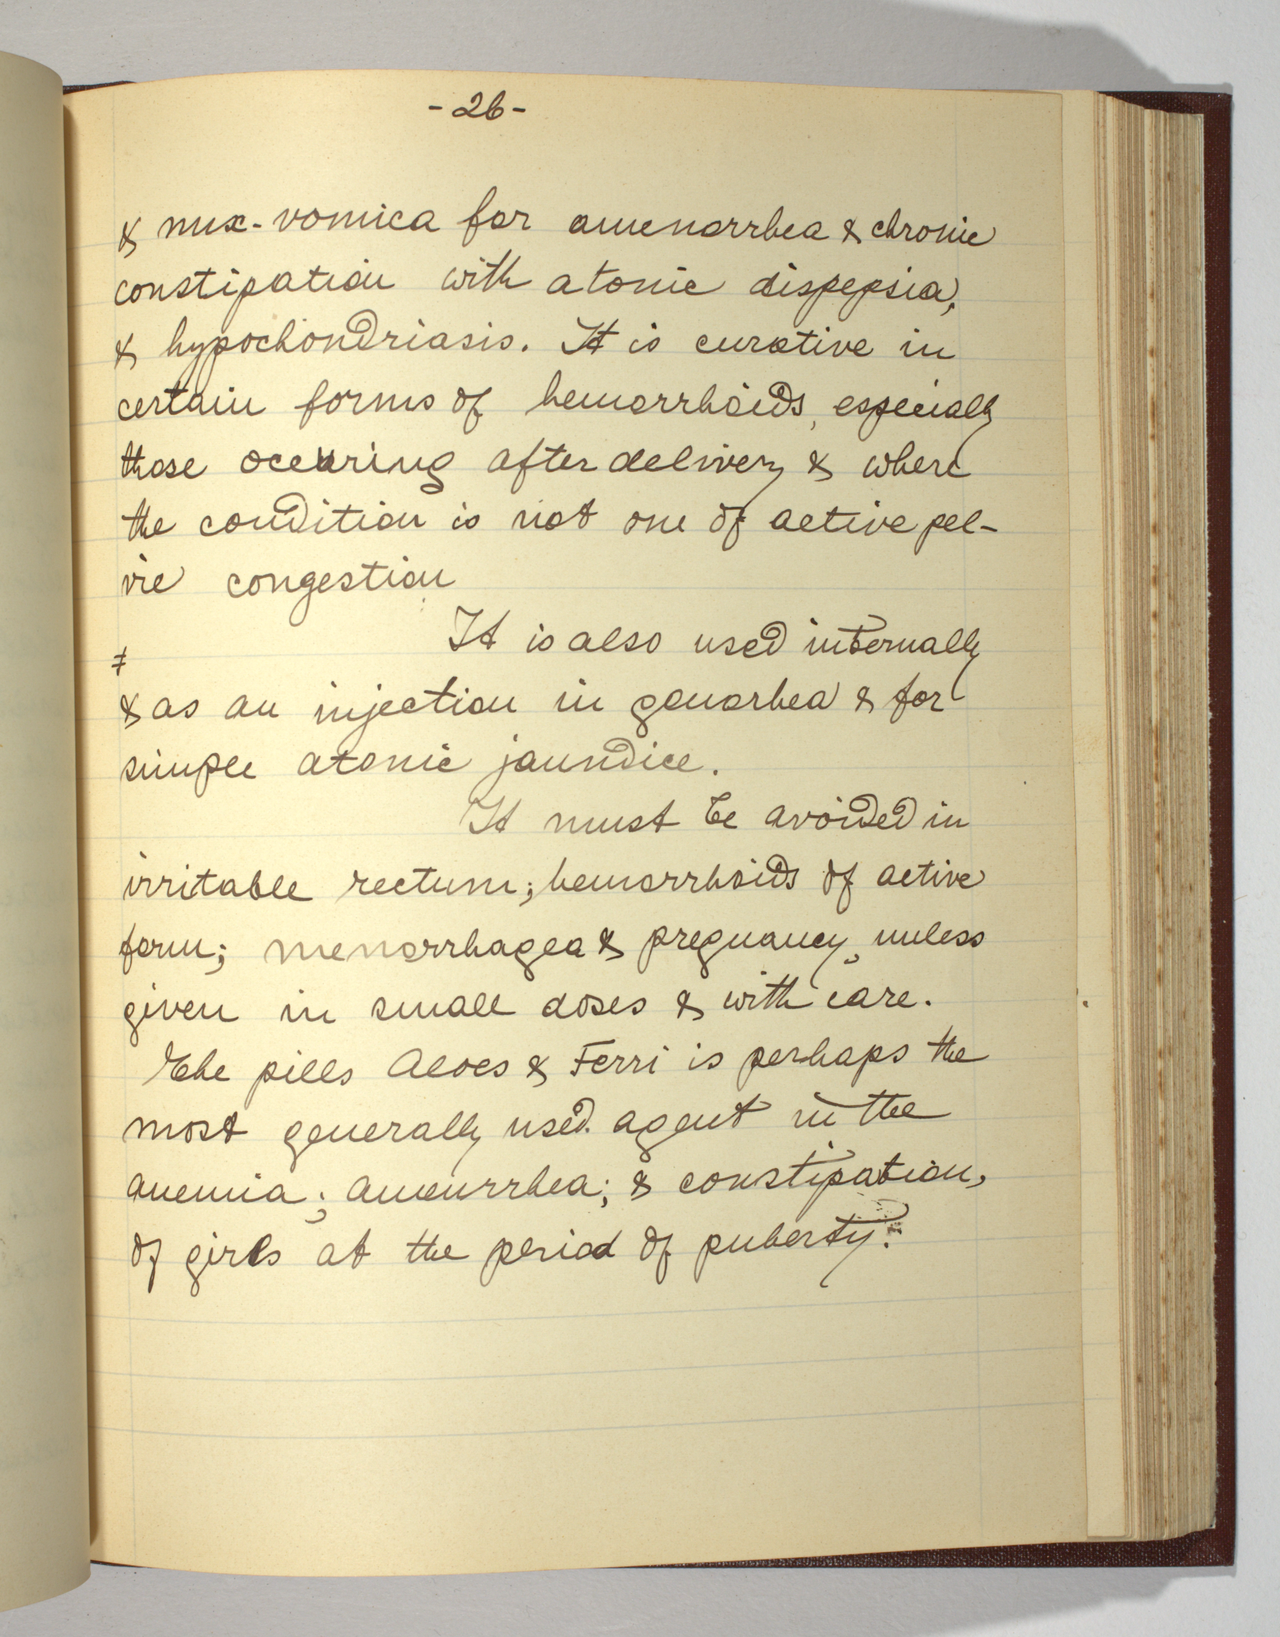 -26-
& nux-vomica for amenorrhea & chronic
constipation with atonic dispepsia,
& hypochondriasis. It is curative in
certain forms of hemorrhoids, especially
those occuring after delivery & where
the condition is not one of active pel-
vic congestion
It is also used internally
≠
& as an injection in gonorhea & for
simple atonic jaundice.
It must be avoided in
irritable rectum; hemorrhoids of active
form; menorrhagea & pregnancy, unless
given in small doses & with care.
The pills Aloes & Ferri is perhaps the
most generally used agent in the
anemia; amenrrhea; & constipation,
of girls at the period of puberty.